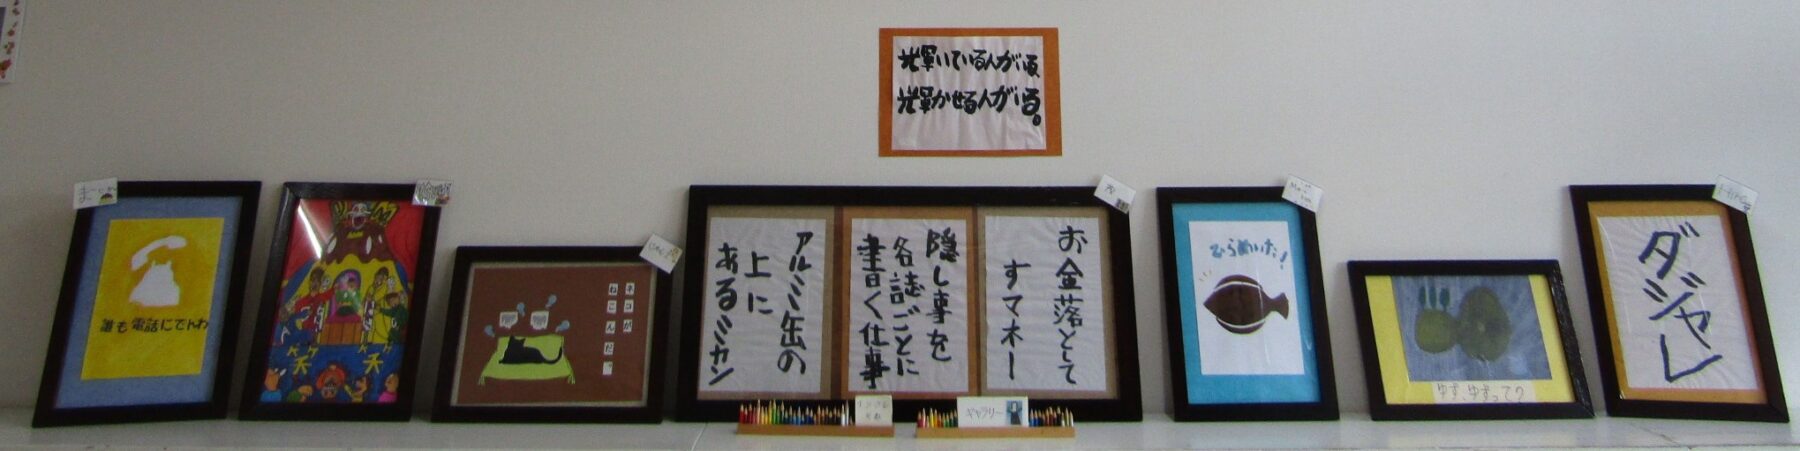 輝いている人がいる
輝かせる人がいる。
誰も電話にでんわ
ネコが
ねこんだ。
アルミ缶の
上に
あるミカン
隠し事を
各誌ごとに
書く仕事
お金落として
すマネー
ひらめいた!
ゆず、ゆずって?
ダジャレ
ギャラリー